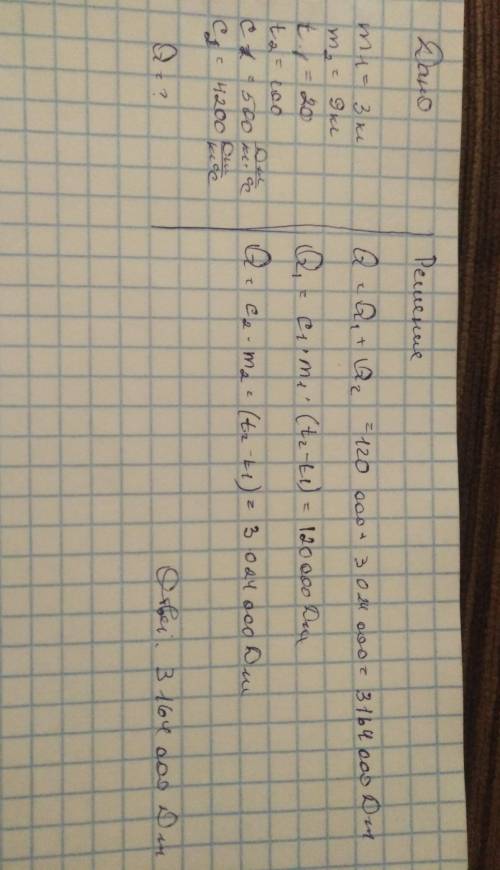 Дано
m1 = 3 кг
m2 = 9 кг
t1 = 20
t2 = 100
c1 = 500 Дж/кг·°C
c2 = 4200 Дж/кг·°C
Q = ?
Решение
Q = Q1 + Q2 = 120 000 + 3 024 000 = 3164 000 Дж
Q1 = c1 · m1 · (t2 - t1) = 120 000 Дж
Q = c2 · m2 = (t2 - t1) = 3 024 000 Дж
Ответ: 3 164 000 Дж